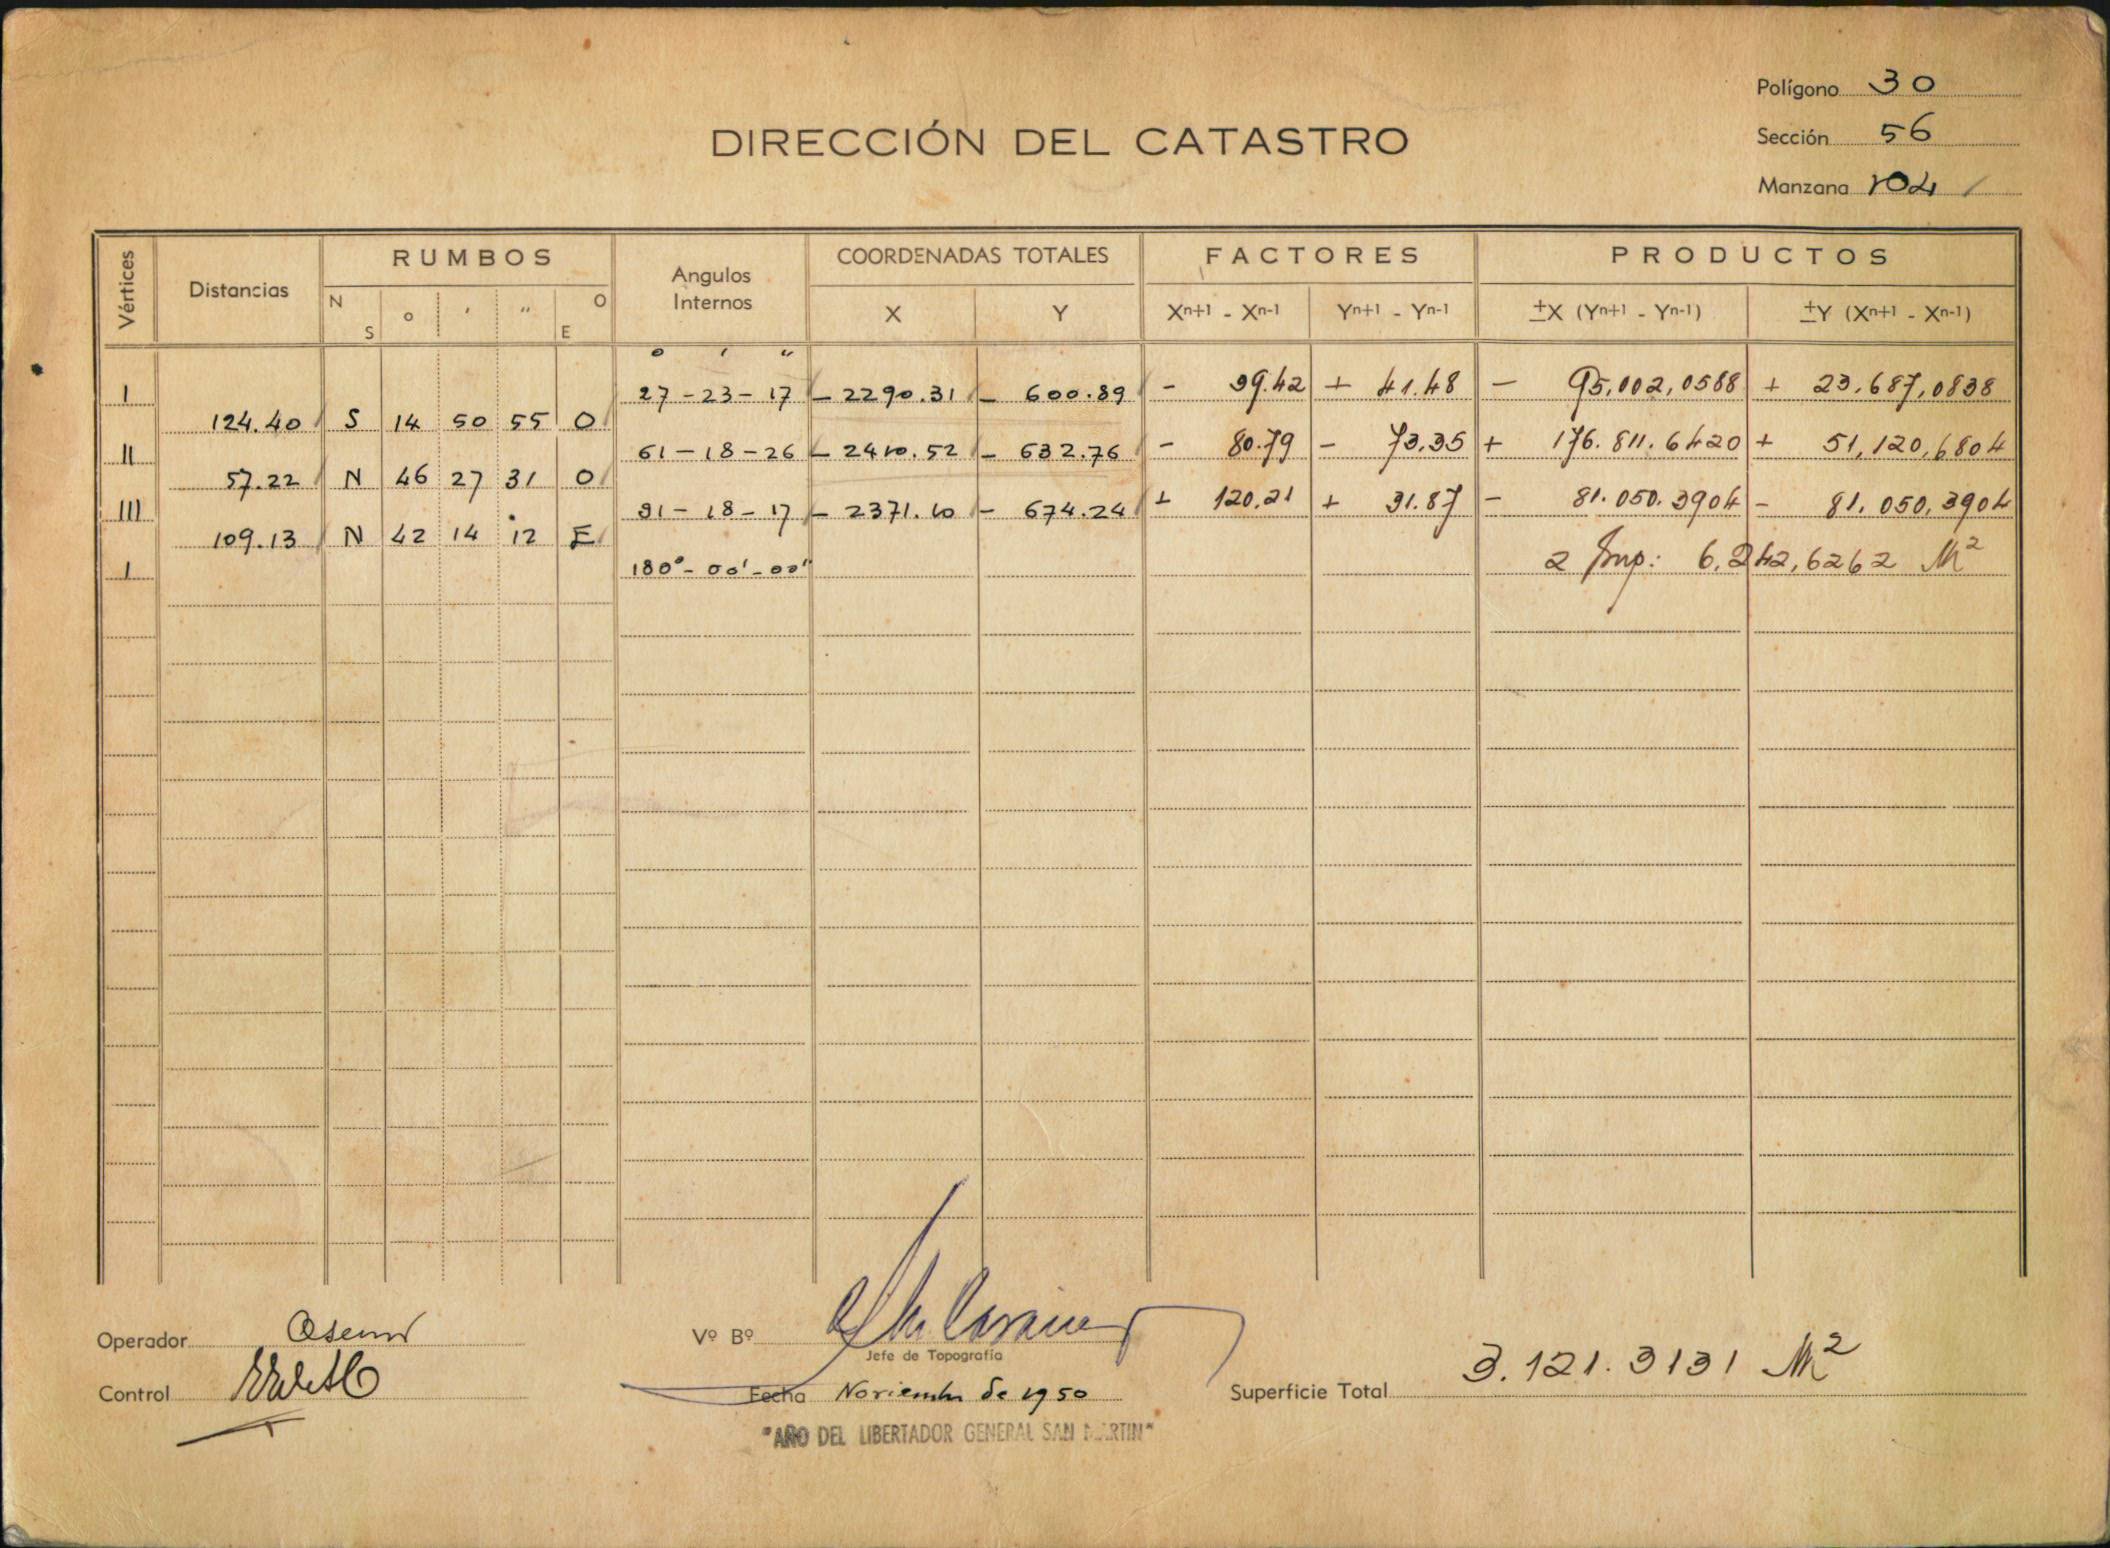 Polígono 30
DIRECCIÓN DEL CATASTRO
Sección 56
Manzana 104 /
Vértices Distancias RUMBOS Angulos Internos COORDENADAS TOTALES FACTORES PRODUCTOS
N S o ' " O E X Y Xn+1 - Xn-1 Yn+1 - Yn-1 ±X (Yn+1 - Yn-1) ±Y (Xn+1 - Xn-1)
o ' "
I 27-23-17 - 2290.31 - 600.89 - 39.42 + 41.48 - 95,002,0588 + 23.687,0838
124.40 S 14 50 55 O
II 61-18-26 - 2410.52 - 632.76 - 80.79 - 73.35 + 176.811.6420 + 51,120,6804
57.22 N 46 27 31 O
III 91-18-17 - 2371.10 - 674.24 + 120.21 + 31.87 - 81.050.3904 - 81.050,3904
109.13 N 42 14 12 E
I 180°-00'-00" 2 Sup: 6,242,6262 M²
Operador
Vº Bº
Jefe de Topografía
Control
Fecha Noviembre de 1950
Superficie Total 3.121.3131 M²
"AÑO DEL LIBERTADOR GENERAL SAN MARTIN"